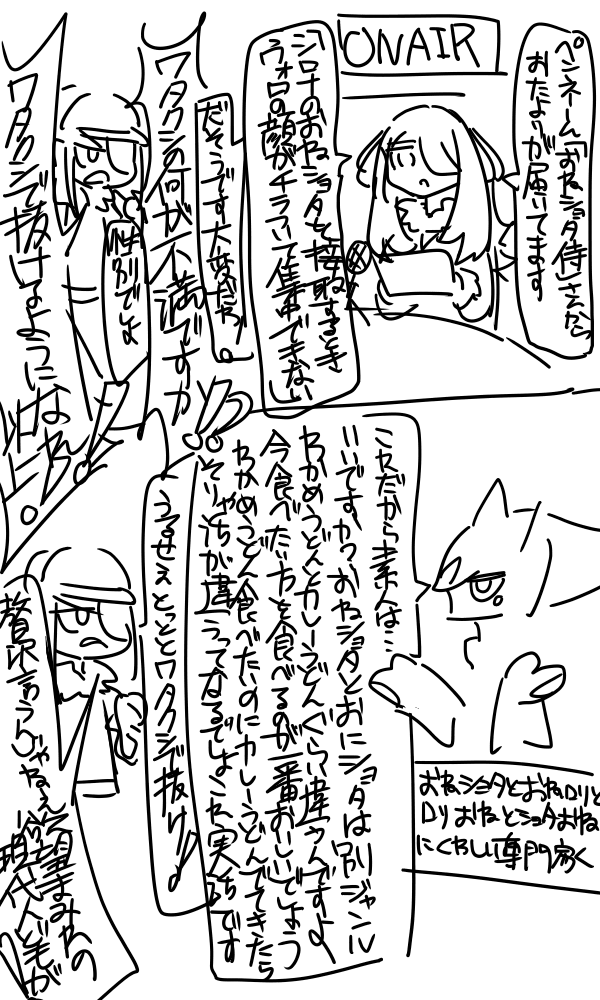 ONAIR
ペンネーム「おねショタ侍」さんから
おたよりが届いてます
「シロナのおねショタを摂取するとき
ウォロの顔がチラついて集中できない」
だそうです大変だなぁ
ワタクシの何が不満ですか
性別でしょ
ワタクシで抜けるように
なれ
これだから素人は…
いいですかおねショタとおにショタは別ジャンル
わかめうどんとカレーうどんぐらい違うんですよ
今食べたい方を食べるのが一番おいしいでしょう
わかめうどん食べたいのにカレーうどんでてきたら
そりゃ話が違うってなるでしょこれ実質
です
おねショタとおねロリと
ロリおねとショタおね
にくわしい専門家く
うるせぇとっととワタクシで抜け!!
贅沢言うんじゃねぇ
まみれの
現代人ども が